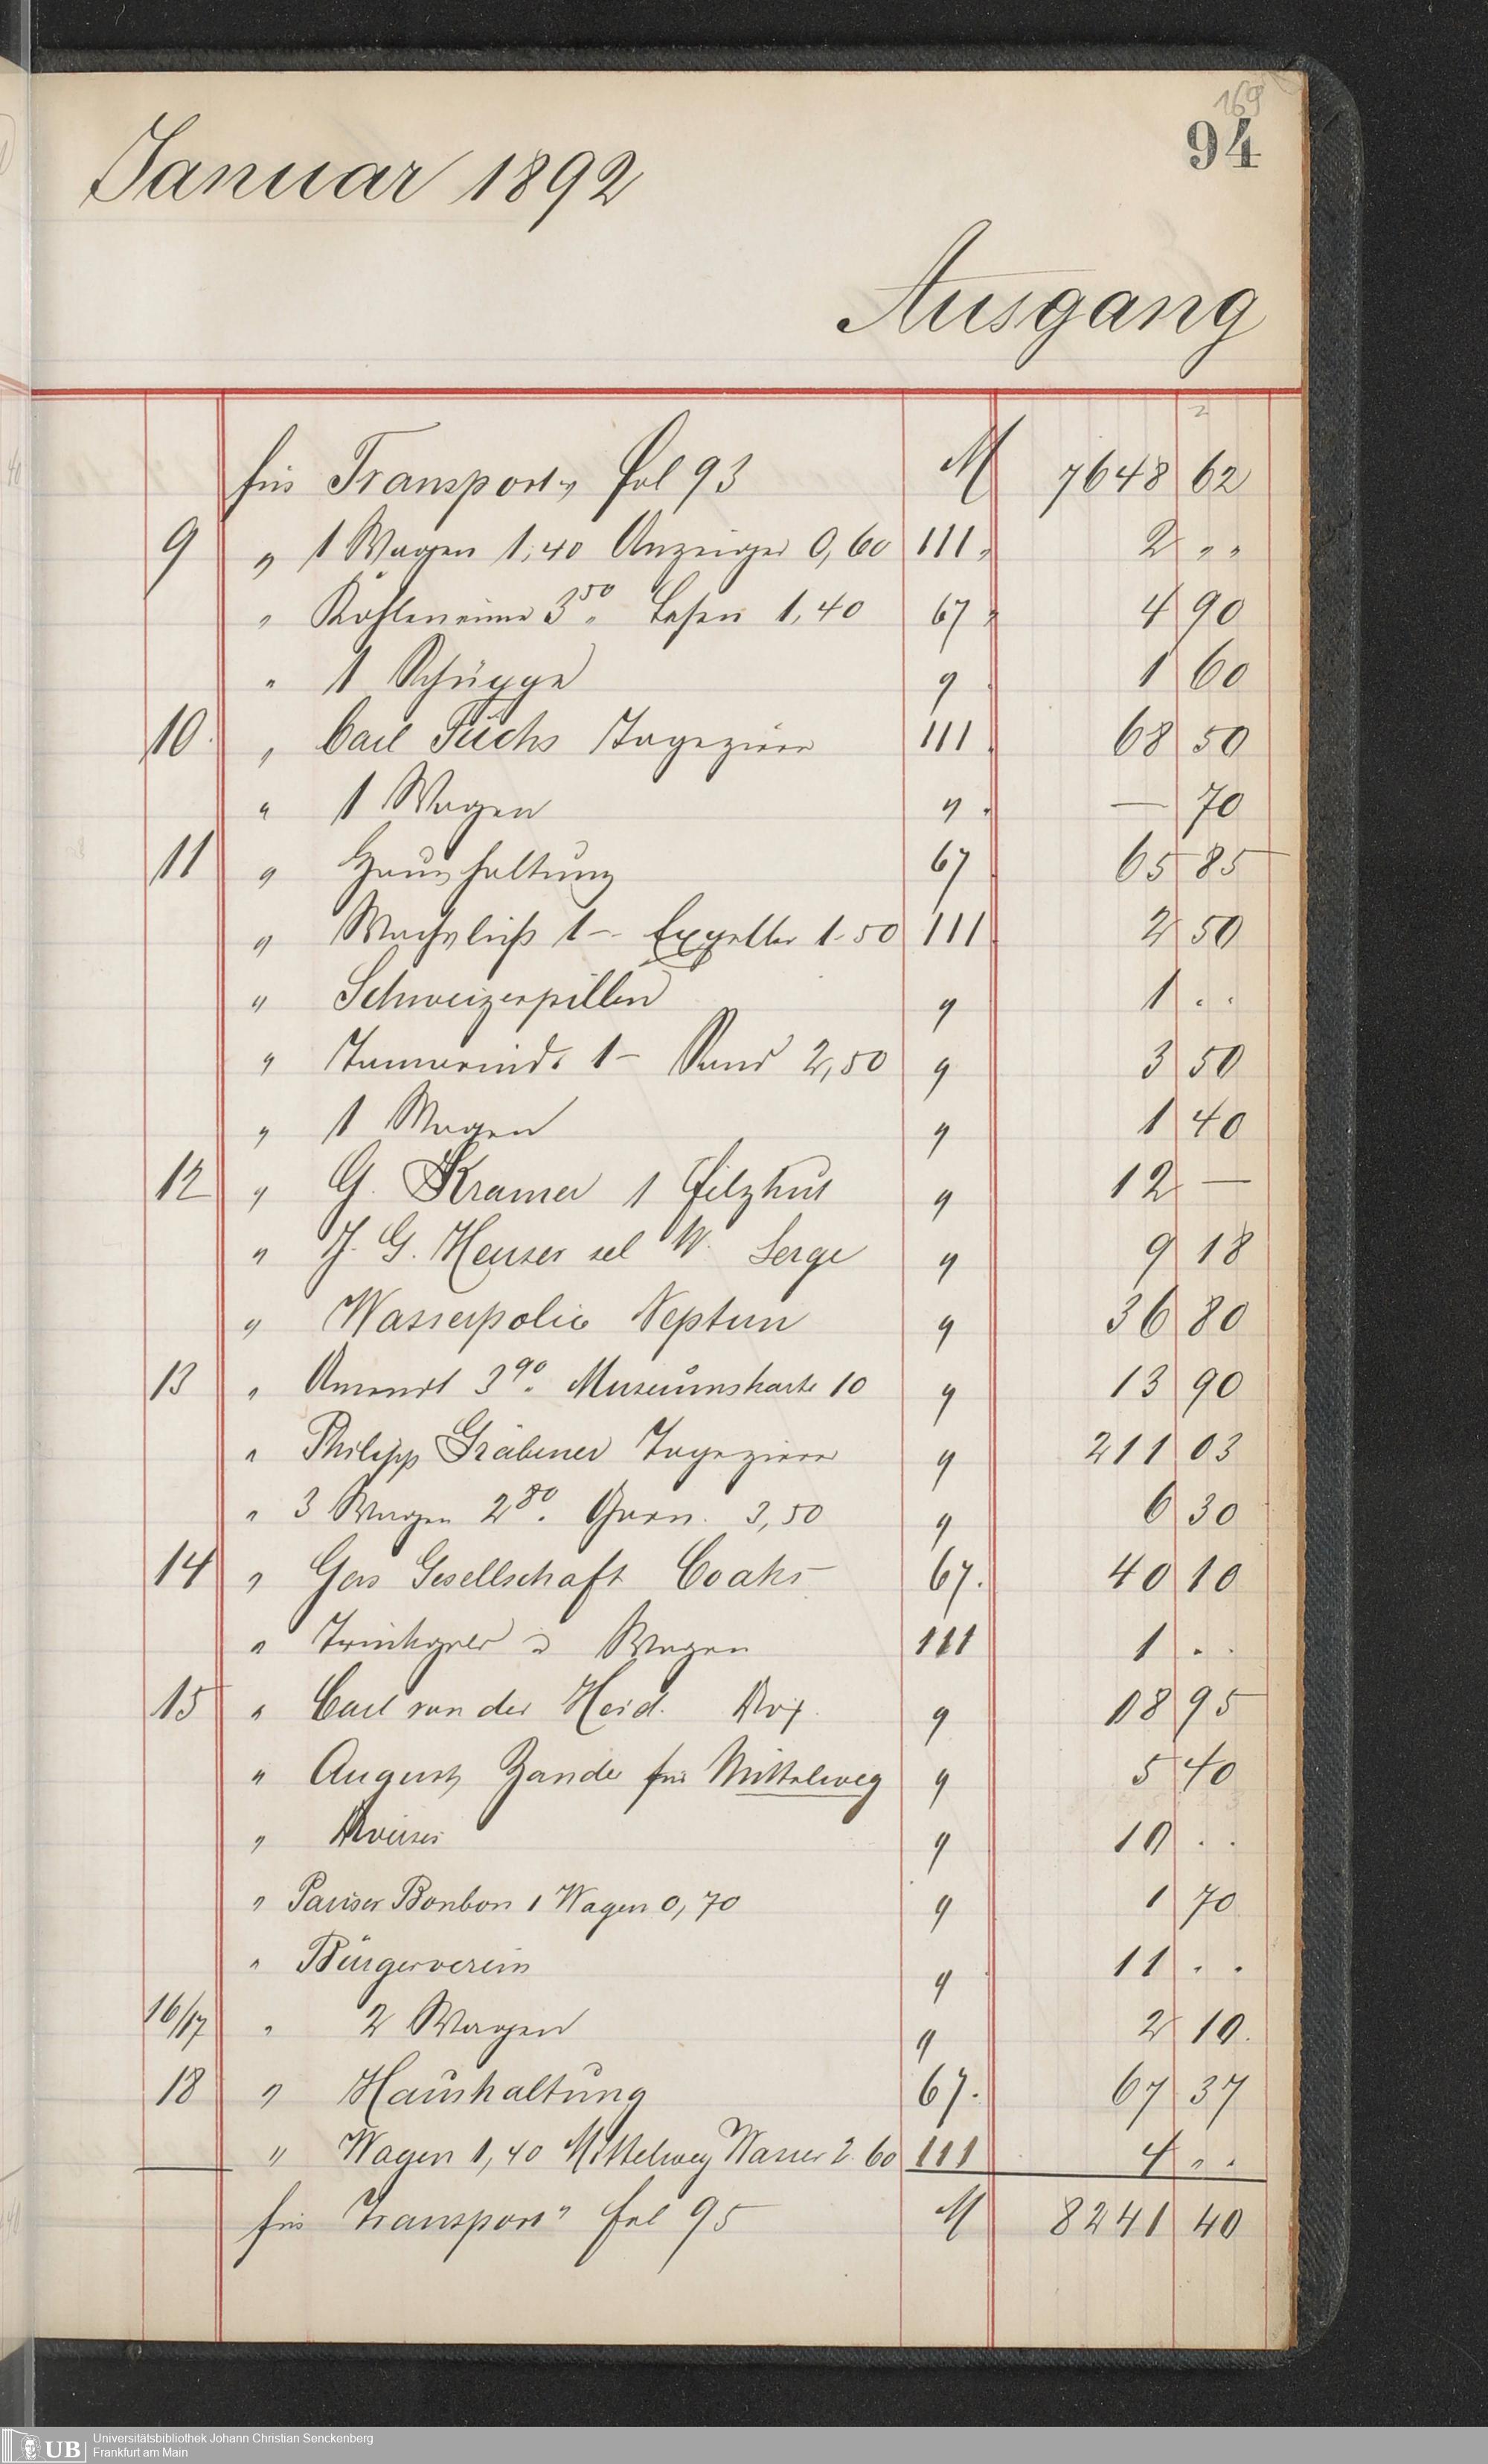 169
94
Januar 1892
Ausgang
für Transport " fol 93 M 7648 62
9 " 1 Wagen 1,40 Anzeiger 0,60 111 " 2 " "
" Kohleneimer 3 50 " Besen 1,40 67 " 4 90
" 1 Schüppe " 1 60
10. " Carl Fuchs Tapezierer 111. 68 50
" 1 Wagen " . — 70
11 " Haushaltung 67 65 85
" 1 — Expeller 1.50 111 2 50
" Schweizerpillen " 1 . .
" Tamarinde 1 — 2,50 " 3 50
" 1 Wagen " 1 40
12 " G. Kramer 1 Filzhut " 12 —
" J. G. Heuser sel W. Serge " 9 18
" Wasserpolice Neptun " 36 80
13 " 3 90 . Museumskarte 10 " 13 90
" Philipp Gräbener Tapezierer " 211 03
" 3 Wagen 2 80 . Garn. 3,50 " 6 30
14 " Gas Gesellschaft Coaks 67. 40 10
" Trinkgeld & Wagen 111 1 . .
15 " Carl von der Heid. " 18 95
" August Zander für Mittelweg " 5 40
" " 10 . .
" Pariser Bonbon 1 Wagen 0,70 " 1 70
" Bürgerverein " 11 . .
16/17 " 2 Wagen " 2 10.
18 " Haushaltung 67. 67 37
" Wagen 1,40 Mittelweg Wasser 2.60 111 4 " .
für Transport " fol 95 M 8241 40
UB
Universitätsbibliothek Johann Christian Senckenberg
Frankfurt am Main